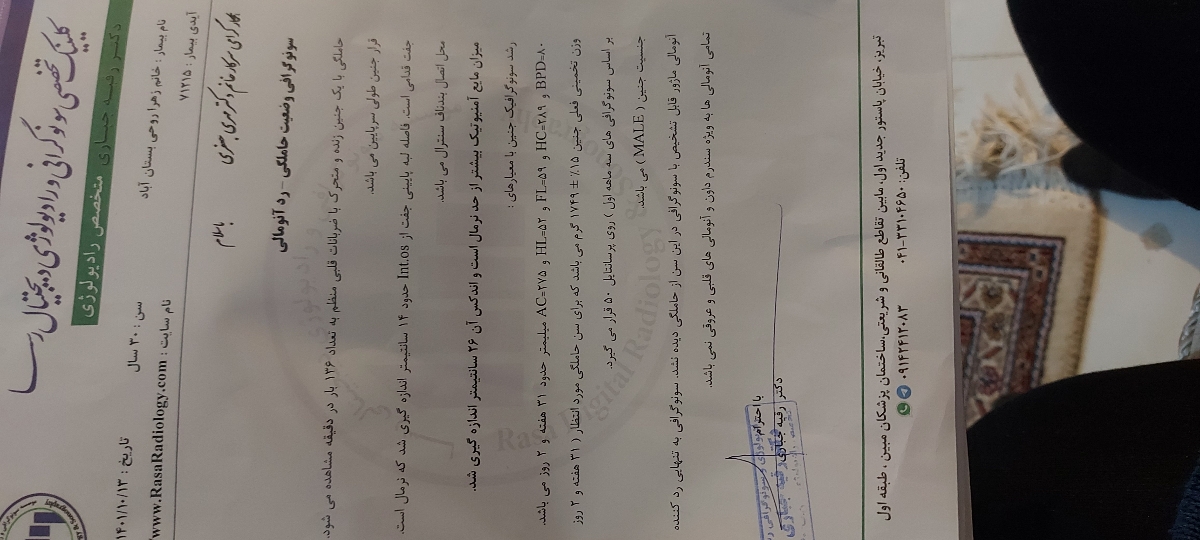 کلینیک تخصصی سونوگرافی و رادیولوژی دیجیتال رسا
دکتر رقیه جباری متخصص رادیولوژی
نام بیمار : خانم زهرا روحی بستان آباد
سن : ۳۰ سال
تاریخ : ۱۴۰۱/۱۰/۱۳
آیدی بیمار : ۷۱۲۱۵
نام سایت : www.RasaRadiology.com
همکار گرامی سرکار خانم دکتر مهری جعفری
با سلام
سونوگرافی وضعیت حاملگی - رد آنومالی
حاملگی با یک جنین زنده و متحرک با ضربانات قلبی منظم به تعداد ۱۳۶ بار در دقیقه مشاهده می شود.
قرار جنین طولی سرپایین می باشد.
جفت قدامی است. فاصله لبه پایینی جفت از Int.os حدود ۱۴ سانتیمتر اندازه گیری شد که نرمال است.
محل اتصال بندناف سنترال می باشد.
میزان مایع آمنیوتیک بیشتر از حد نرمال است و اندکس آن ۲۶ سانتیمتر اندازه گیری شد.
رشد سونوگرافیک جنین با معیارهای :
BPD=۸۰ و HC=۲۸۹ و FL=۵۹ و HL=۵۲ و AC=۲۷۵ میلیمتر حدود ۳۱ هفته و ۲ روز می باشد.
وزن تخمینی فعلی جنین ۱۵٪ ± ۱۷۴۹ گرم می باشد که برای سن حاملگی مورد انتظار ( ۳۱ هفته و ۲ روز
بر اساس سونوگرافی های سه ماهه اول ) روی پرسانتایل ۵۰ قرار می گیرد.
جنسیت جنین ( MALE ) می باشد.
آنومالی ماژور قابل تشخیص با سونوگرافی در این سن از حاملگی دیده نشد. سونوگرافی به تنهایی رد کننده
تمامی آنومالی ها به ویژه سندرم داون و آنومالی های قلبی و عروقی نمی باشد.
با احترام
دکتر رقیه جباری
Rasa Digital Radiology
تبریز، خیابان پاستور جدید اول، مابین تقاطع طالقانی و شریعتی، ساختمان پزشکان مبین ، طبقه اول
تلفن: ۰۴۱-۳۳۱۰۴۶۵۰ ۰۹۱۴۲۴۱۲۰۸۳